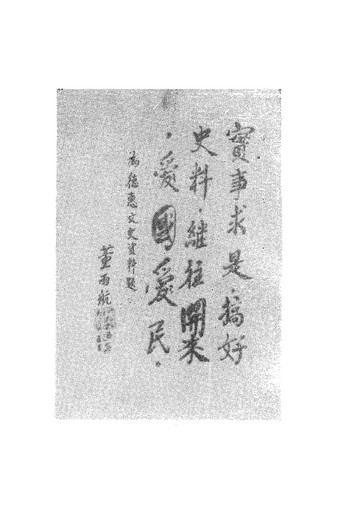 實事求是，搞好
史料，继往開来
，愛國愛民。
為德惠文史資料題。
董雨航